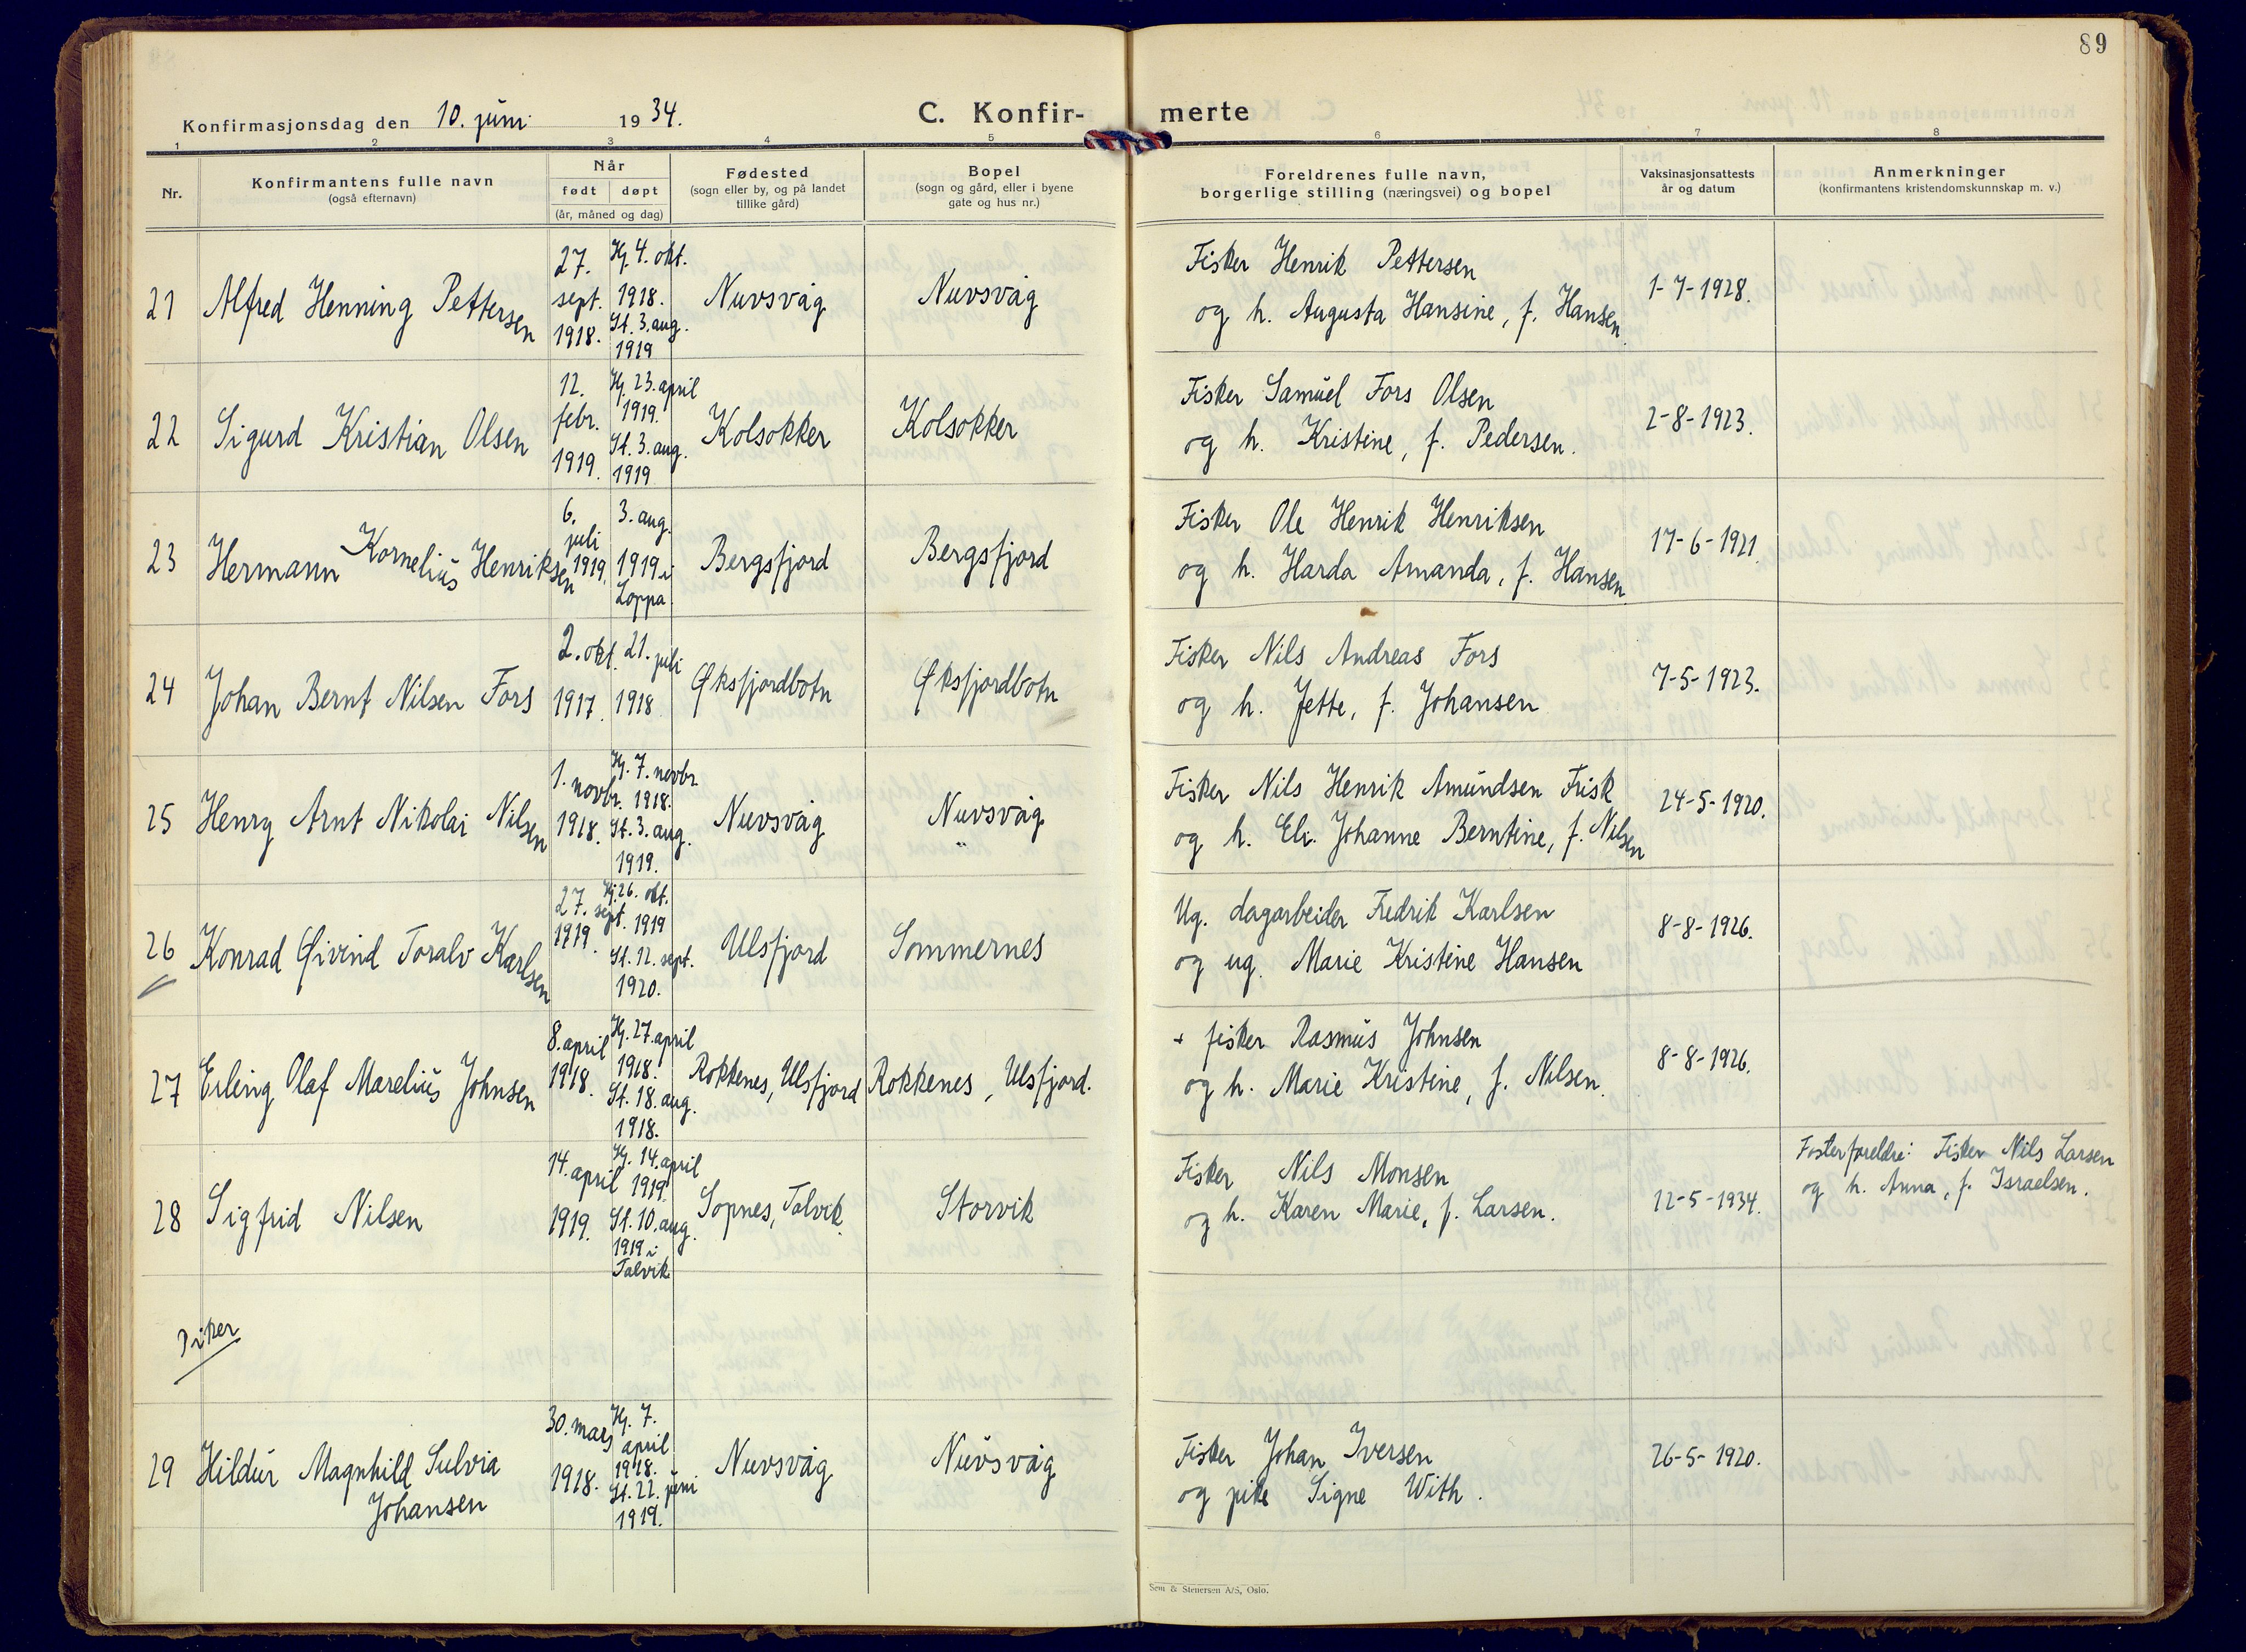 89
Konfirmasjonsdag den 10. juni 1934.
C. Konfirmerte
1 2 3 4 5 6 7 8
Nr.
Konfirmantens fulle navn
(også efternavn)
Når
født døpt
(år, måned og dag)
Fødested
(sogn eller by, og på landet
tillike gård)
Bopel
(sogn og gård, eller i byene
gate og hus nr.)
Foreldrenes fulle navn,
borgerlige stilling (næringsvei) og bopel
Vaksinasjonsattests
år og datum
Anmerkninger
(konfirmantens kristendomskunnskap m. v.)
21
Alfred Henning Pettersen
27.
sept.
1918.
Hj. 4. okt.
1918.
St. 3. aug.
1919
Nuvsvåg
Nuvsvåg
Fisker Henrik Pettersen
og h. Augusta Hansine, f. Hansen
1-7-1928.
22
Sigurd Kristian Olsen
12.
febr.
1919.
Hj. 23. april
1919.
St. 3. aug.
1919
Kolsokker
Kolsokker
Fisker Samuel Fors Olsen
og h. Kristine, f. Pedersen.
2-8-1923.
23
Hermann Kornelius Henriksen
6.
juli
1919.
3. aug.
1919 i
Loppa
Bergsfjord
Bergsfjord
Fisker Ole Henrik Henriksen
og h. Harda Amanda, f. Hansen
17-6-1921.
24
Johan Bernt Nilsen Fors
2. okt.
1917.
21. juli
1918
Øksfjordbotn
Øksfjordbotn
Fisker Nils Andreas Fors
og h. Jette, f. Johansen
7-5-1923.
25
Henry Arnt Nikolai Nilsen
1. novbr.
1918.
Hj. 7. novbr.
1918.
St. 3. aug.
1919.
Nuvsvåg
Nuvsvåg
Fisker Nils Henrik Amundsen Frisk
og h. Eli Johanne Berntine, f. Nilsen
24-5-1920.
26
Konrad Øivind Toralv Karlsen
27. sept.
1919.
Hj. 26. okt.
1919
St. 12. sept.
1920.
Ulsfjord
Sommernes
Ug. dagarbeider Fredrik Karlsen
og ug. Marie Kristine Hansen
8-8-1926.
27
Erling Olaf Marelius Johnsen
8. april
1918.
Hj. 27. april
1918.
St. 18. aug.
1918.
Rokkenes, Ulsfjord
Rokkenes, Ulsfjord.
+ fisker Rasmus Johnsen
og h. Marie Kristine, f. Nilsen.
8-8-1926.
28
Sigfrid Nilsen
14. april
1919.
Hj. 14. april
1919.
St. 10. aug.
1919 i
Talvik
Sopnes, Talvik
Storvik
Fisker Nils Monsen
og h. Karen Marie, f. Larsen.
12-5-1934.
Fosterforeldre: Fisker Nils Larsen
og h. Anna, f. Israelsen.
Piker
29
Hildur Magnhild Sulvia
Johansen
30. mars
1918.
Hj. 7.
april
1918.
St. 22. juni
1919.
Nuvsvåg
Nuvsvåg
Fisker Johan Iversen
og pike Signe With.
26-5-1920.
Sem & Stenersen A/S, Oslo.